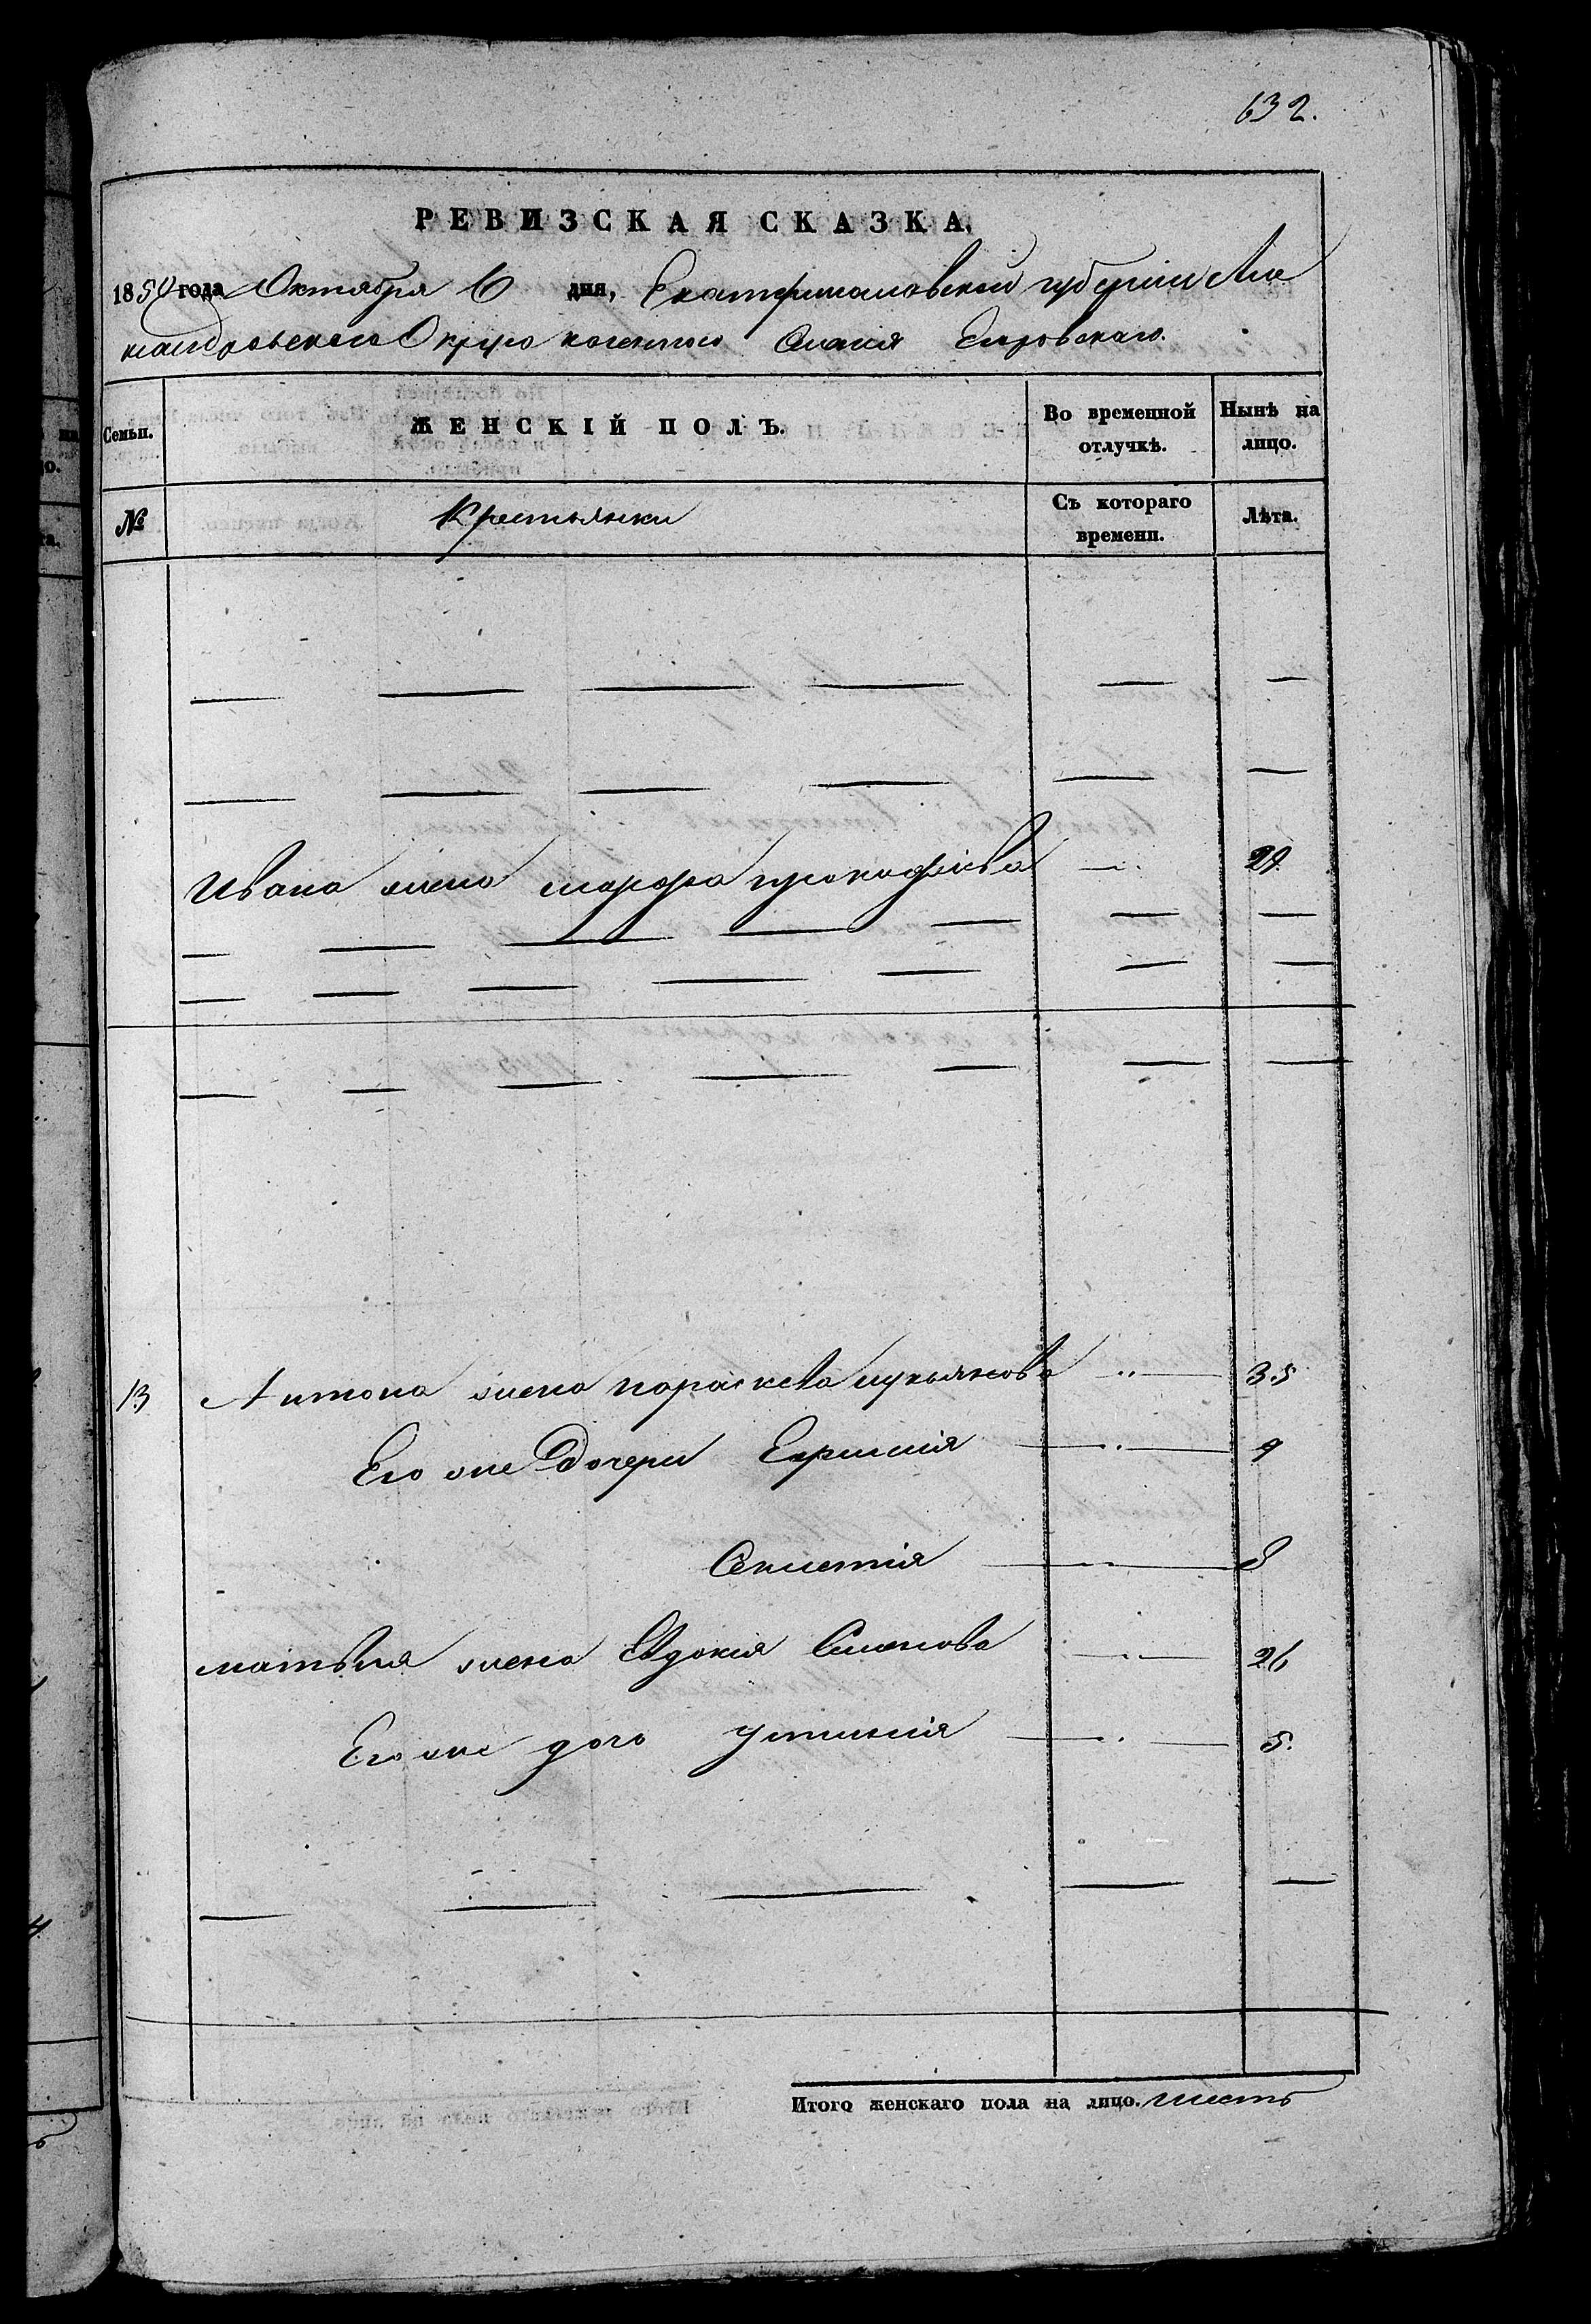 632.
РЕВИЗСКАЯ СКАЗКА,
1850 года Октября 6 дня, Екатеринославской губернии Але
ксандровского Округа казенного Селения
Семьи.
ЖЕНСКІЙ ПОЛЪ.
Во временной отлучкѣ.
Нынѣ на лицо.
№
Крестьянки
Съ котораго времени.
Лѣта.
Ивана жена марфа прокофіева 29
13 Антона жена параскева лукьянова 35
Его же Дочери Ефимия 9
Секлетия 8
матвѣя жена Евдокия Семенова 26
Его же доч Устиния 5.
Итого женскаго пола на лицо. шесть